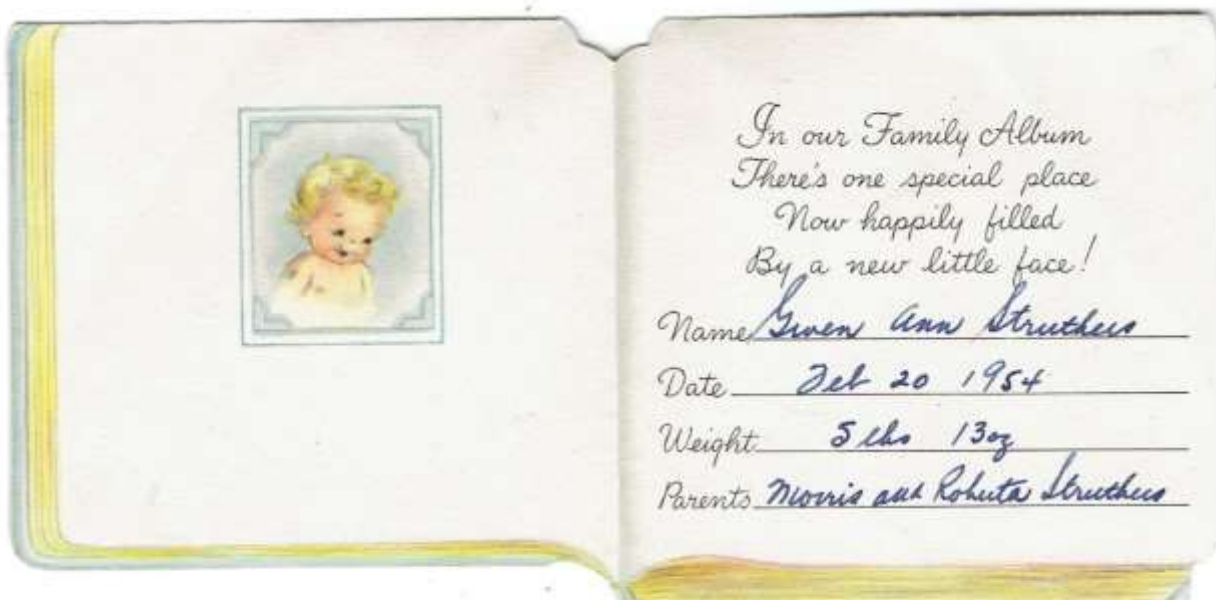 In our Family Album
There's one special place
Now happily filled
By a new little face!
Name Gwen Ann Struthers
Date Feb 20 1954
Weight 5 lbs 13 oz
Parents Morris and Roberta Struthers